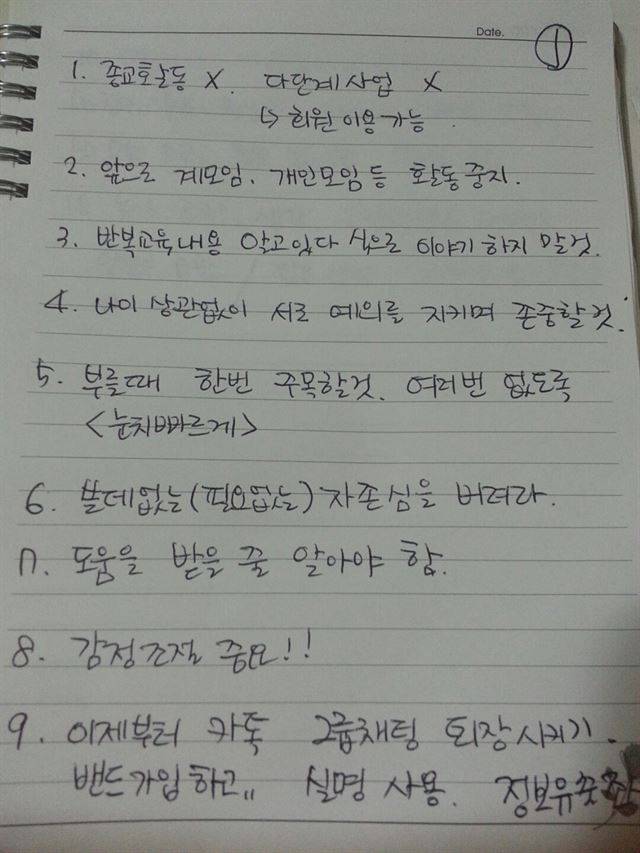 Date. ①
1. 종교활동 X. 다단계사업 X
↳ 회원이용가능.
2. 앞으로 계모임. 개인모임 등 활동중지.
3. 반복교육내용 알고있다 식으로 이야기 하지 말것.
4. 나이 상관없이 서로 예의를 지키며 존중할것.
5. 부를때 한번 주목할것. 여러번 없도록
<눈치빠르게>
6. 쓸데없는(필요없는) 자존심을 버려라.
7. 도움을 받을 줄 알아야 함.
8. 감정조절 중요!!
9. 이제부터 카톡 그룹채팅 퇴장시키기.
밴드가입하고,, 실명 사용. 정보유출